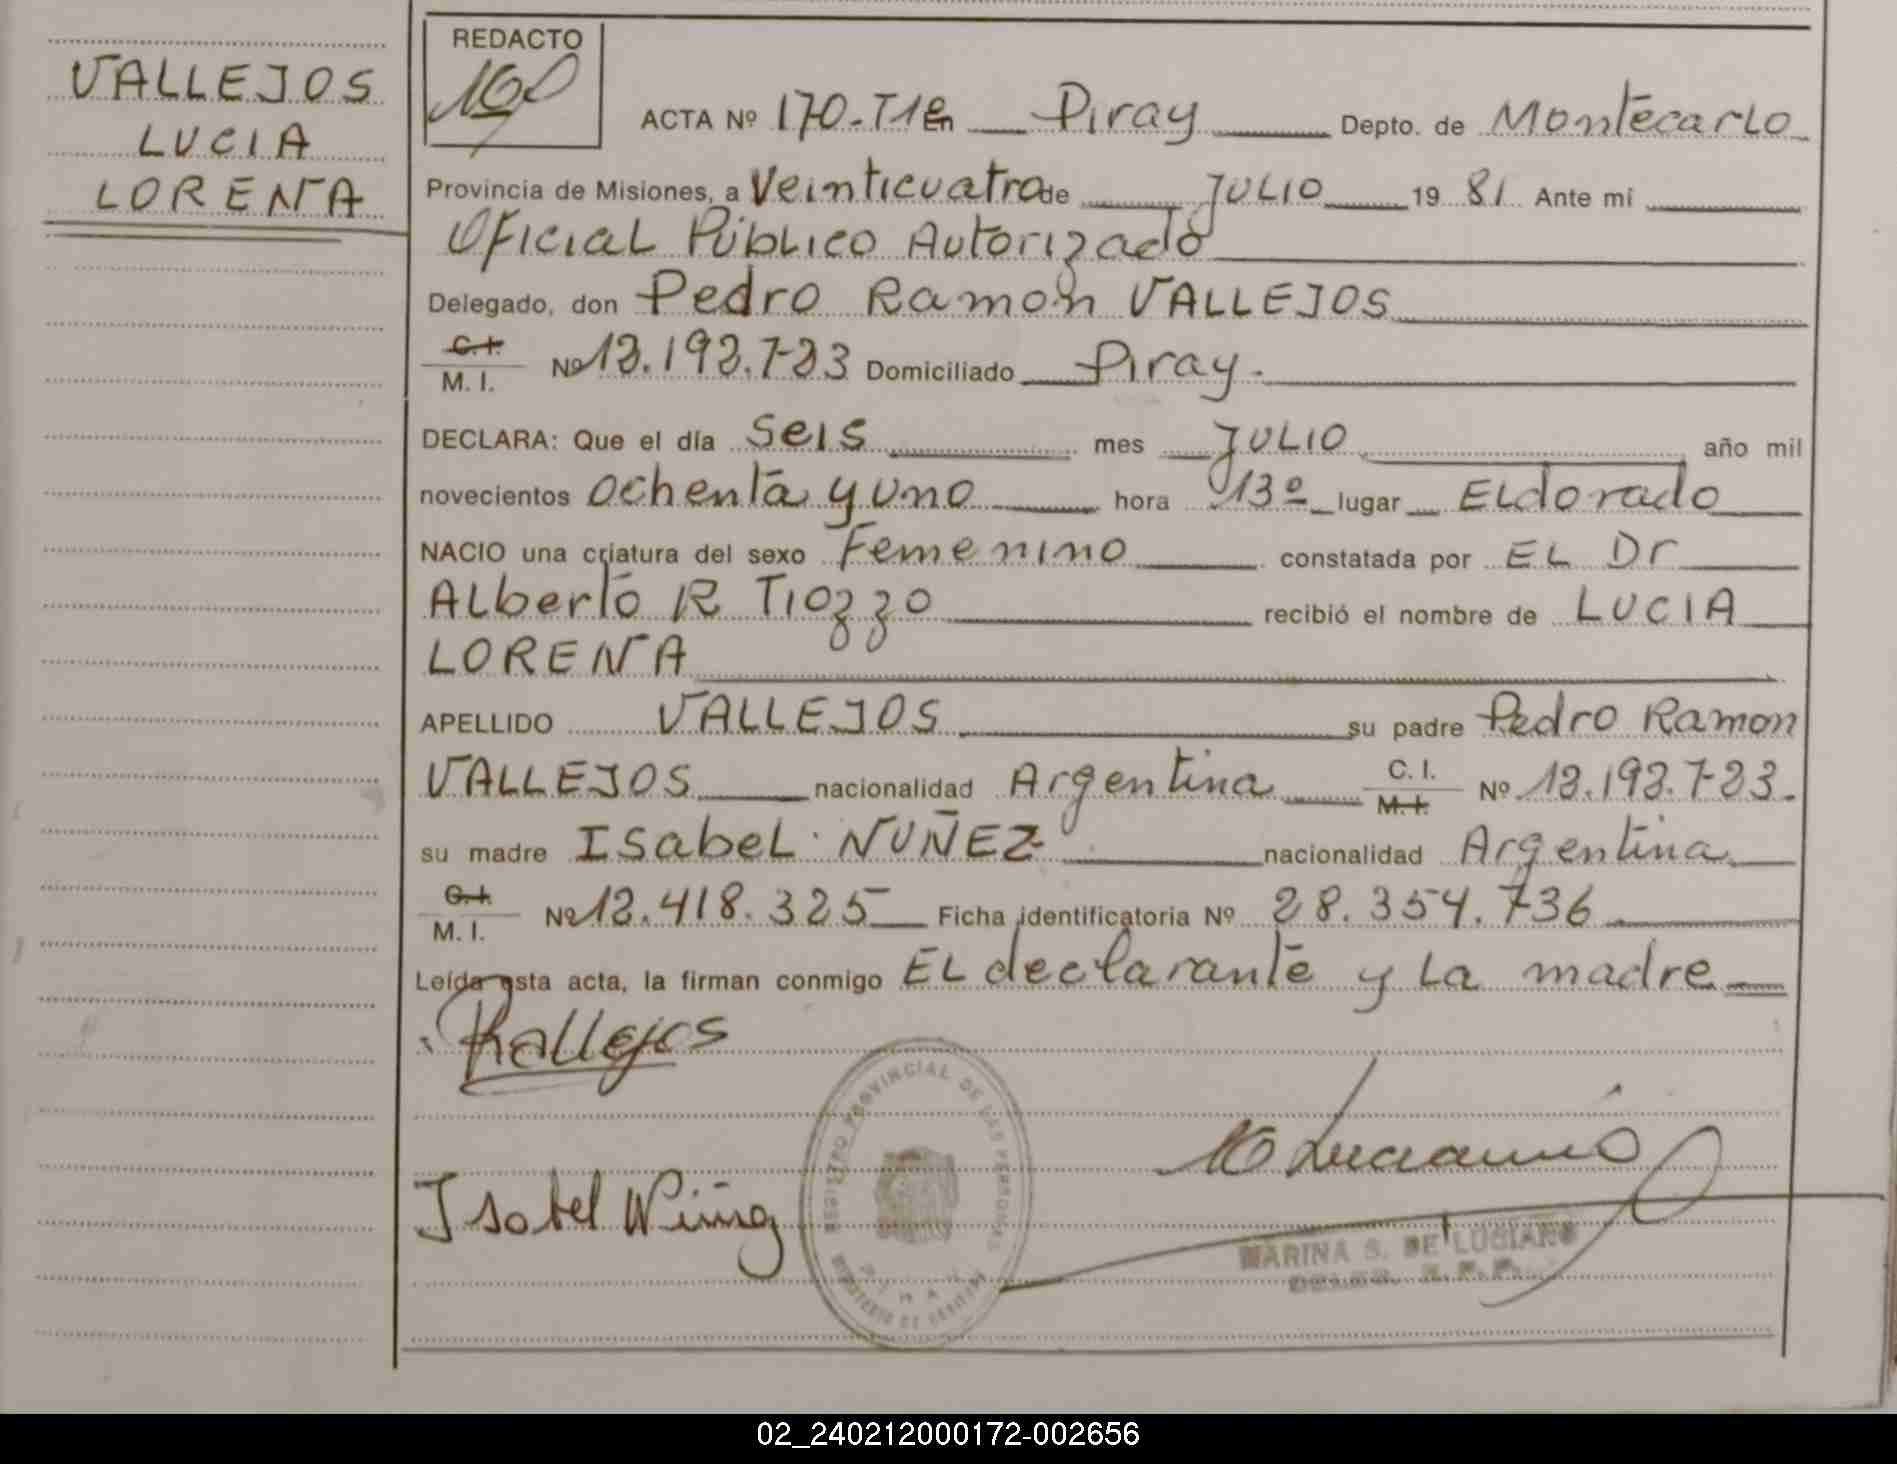 VALLEJOS
LUCIA
LORENA
REDACTO
ACTA Nº 170-T1º En Piray Depto. de Montecarlo
Provincia de Misiones, a Veinticuatro de JULIO 19 81 Ante mí
Oficial Público Autorizado
Delegado, don Pedro Ramon VALLEJOS
C. I.
M. I. Nº 13.193.723 Domiciliado Piray.
DECLARA: Que el día Seis mes JULIO año mil
novecientos ochenta y uno hora 13º lugar ELdorado
NACIO una criatura del sexo Femenino constatada por EL Dr
ALberto R Tiozzo recibió el nombre de LUCIA
LORENA
APELLIDO VALLEJOS su padre Pedro Ramon
VALLEJOS nacionalidad Argentina C. I.
M. I. Nº 13.193.723.
su madre ISabeL NUÑEZ nacionalidad Argentina
C. I.
M. I. Nº 12.418.325 Ficha identificatoria Nº 28.354.736
Leída esta acta, la firman conmigo EL declarante y La madre
Rallejos
Isabel
REGISTRO PROVINCIAL DE LAS PERSONAS
MINISTERIO DE GOBIERNO
MARINA S. DE LUCIANO
02_240212000172-002656